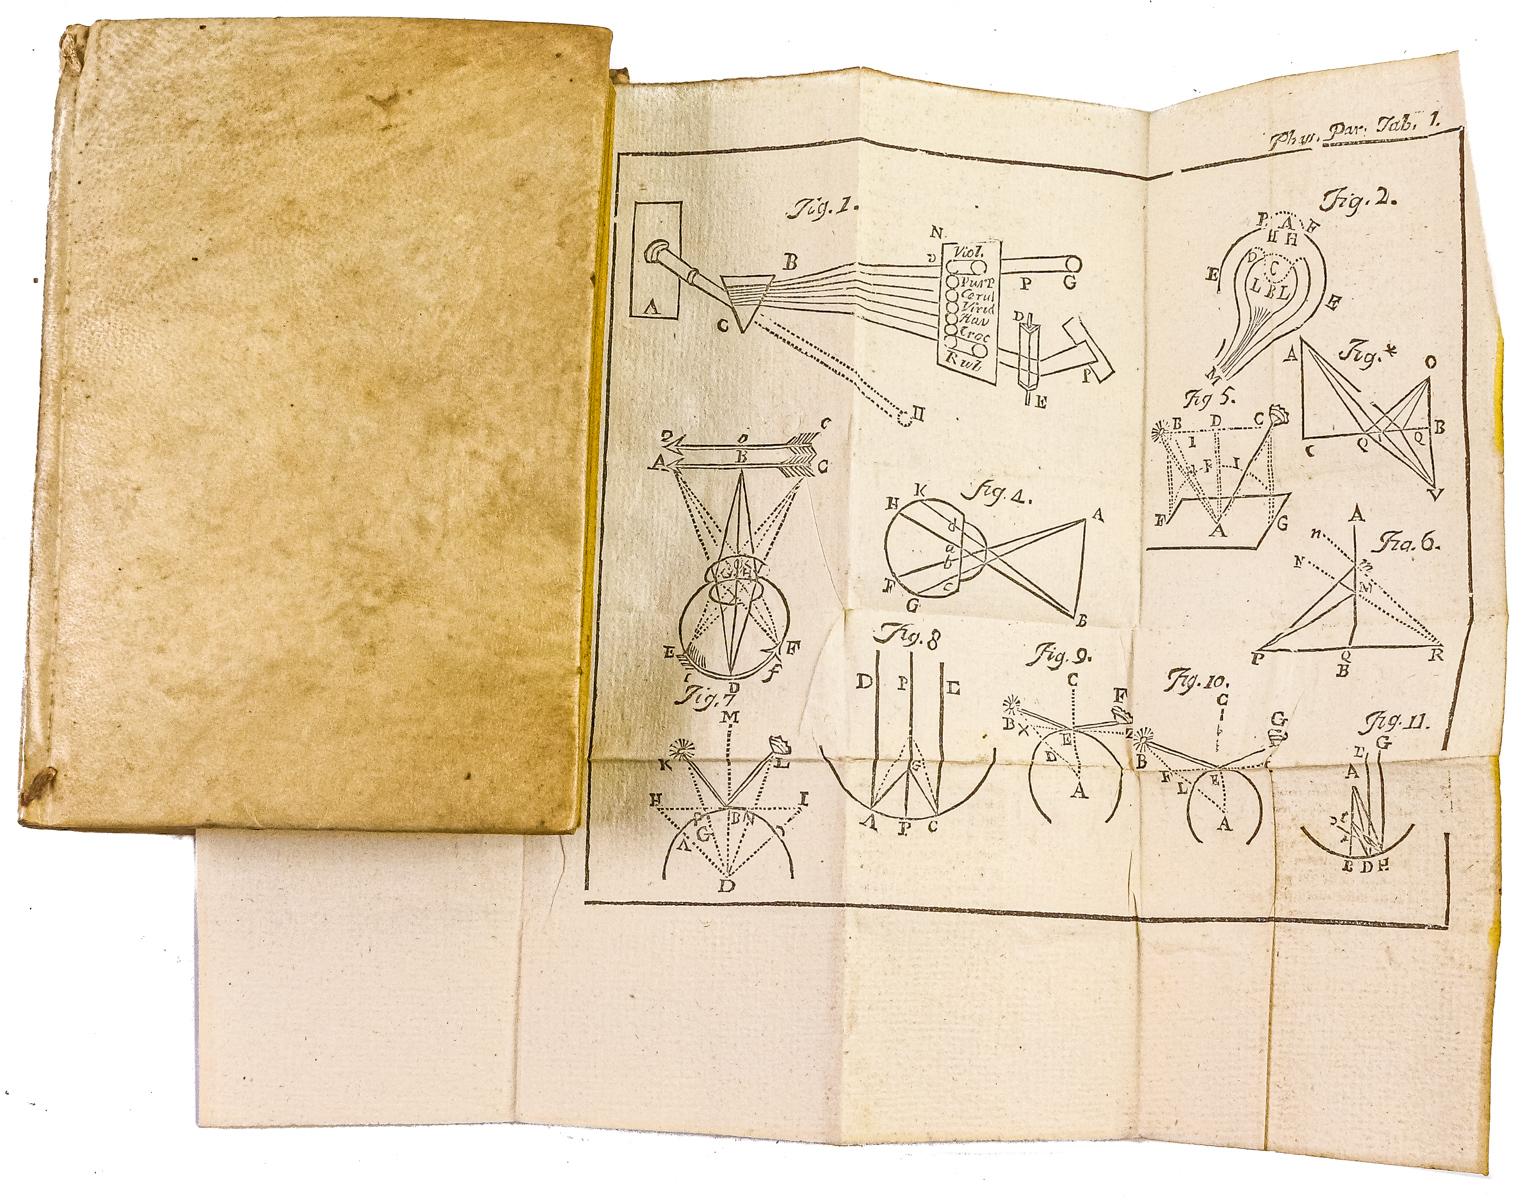 Phys. Par. Tab. 1.
Fig. 1.
A
B
C
N
Viol.
Purp
Cerul
Virid
Flav
Croc
Rub.
P G
D
E
P
Fig. 2.
P A F
H H
D C
E
L B L
E
M
Fig.*
A
O
C Q Q B
V
Fig 5.
B D C
I
F I
F A G
o
A B C
E F
D f
Fig. 4.
H K
d
a
b
c
F
G
A
B
Fig. 6.
A
n
N
m
M
P Q R
B
Fig. 7
M
K L
H I
P G B N
A
D
Fig. 8
D P E
G
A P C
Fig. 9.
C
B F
E
D
A
Fig. 10.
C
G
B
F E
L
A
Fig. 11.
G
A
B D H